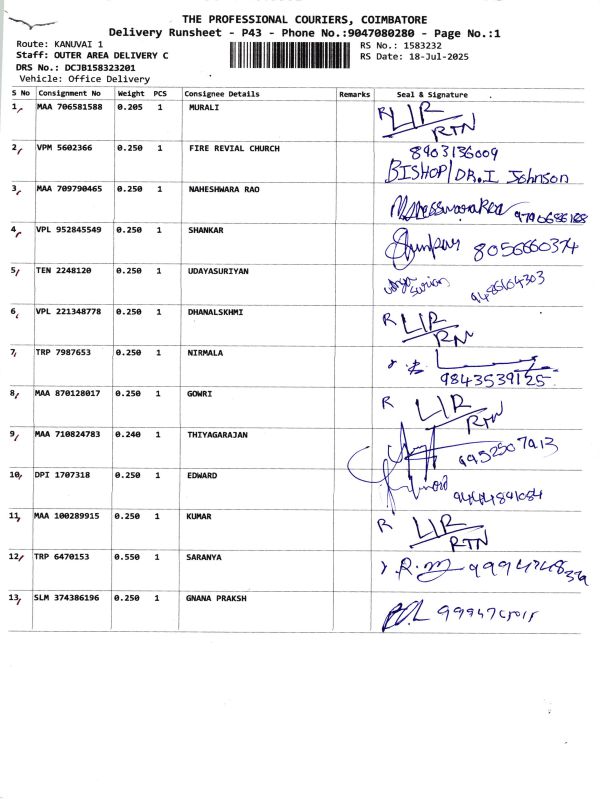 THE PROFESSIONAL COURIERS, COIMBATORE
Delivery Runsheet - P43 - Phone No.:9047080280 - Page No.:1
Route: KANUVAI 1
Staff: OUTER AREA DELIVERY C
DRS No.: DCJB158323201
Vehicle: Office Delivery
RS No.: 1583232
RS Date: 18-Jul-2025
S No Consignment No Weight PCS Consignee Details Remarks Seal & Signature
1, MAA 706581588 0.205 1 MURALI R LIR
RTN
2, VPM 5602366 0.250 1 FIRE REVIAL CHURCH 8903136009
BISHOP/DR.I Johnson
3, MAA 709790465 0.250 1 NAHESHWARA RAO
4, VPL 952845549 0.250 1 SHANKAR 8056660374
5, TEN 2248120 0.250 1 UDAYASURIYAN
9486164303
6, VPL 221348778 0.250 1 DHANALSKHMI R LIR
RTN
7, TRP 7987653 0.250 1 NIRMALA
9843539125
8, MAA 870128017 0.250 1 GOWRI R LIR
RTN
9, MAA 710824783 0.240 1 THIYAGARAJAN 9952507913
10, DPI 1707318 0.250 1 EDWARD
11, MAA 100289915 0.250 1 KUMAR R LIR
RTN
12, TRP 6470153 0.550 1 SARANYA
13, SLM 374386196 0.250 1 GNANA PRAKSH